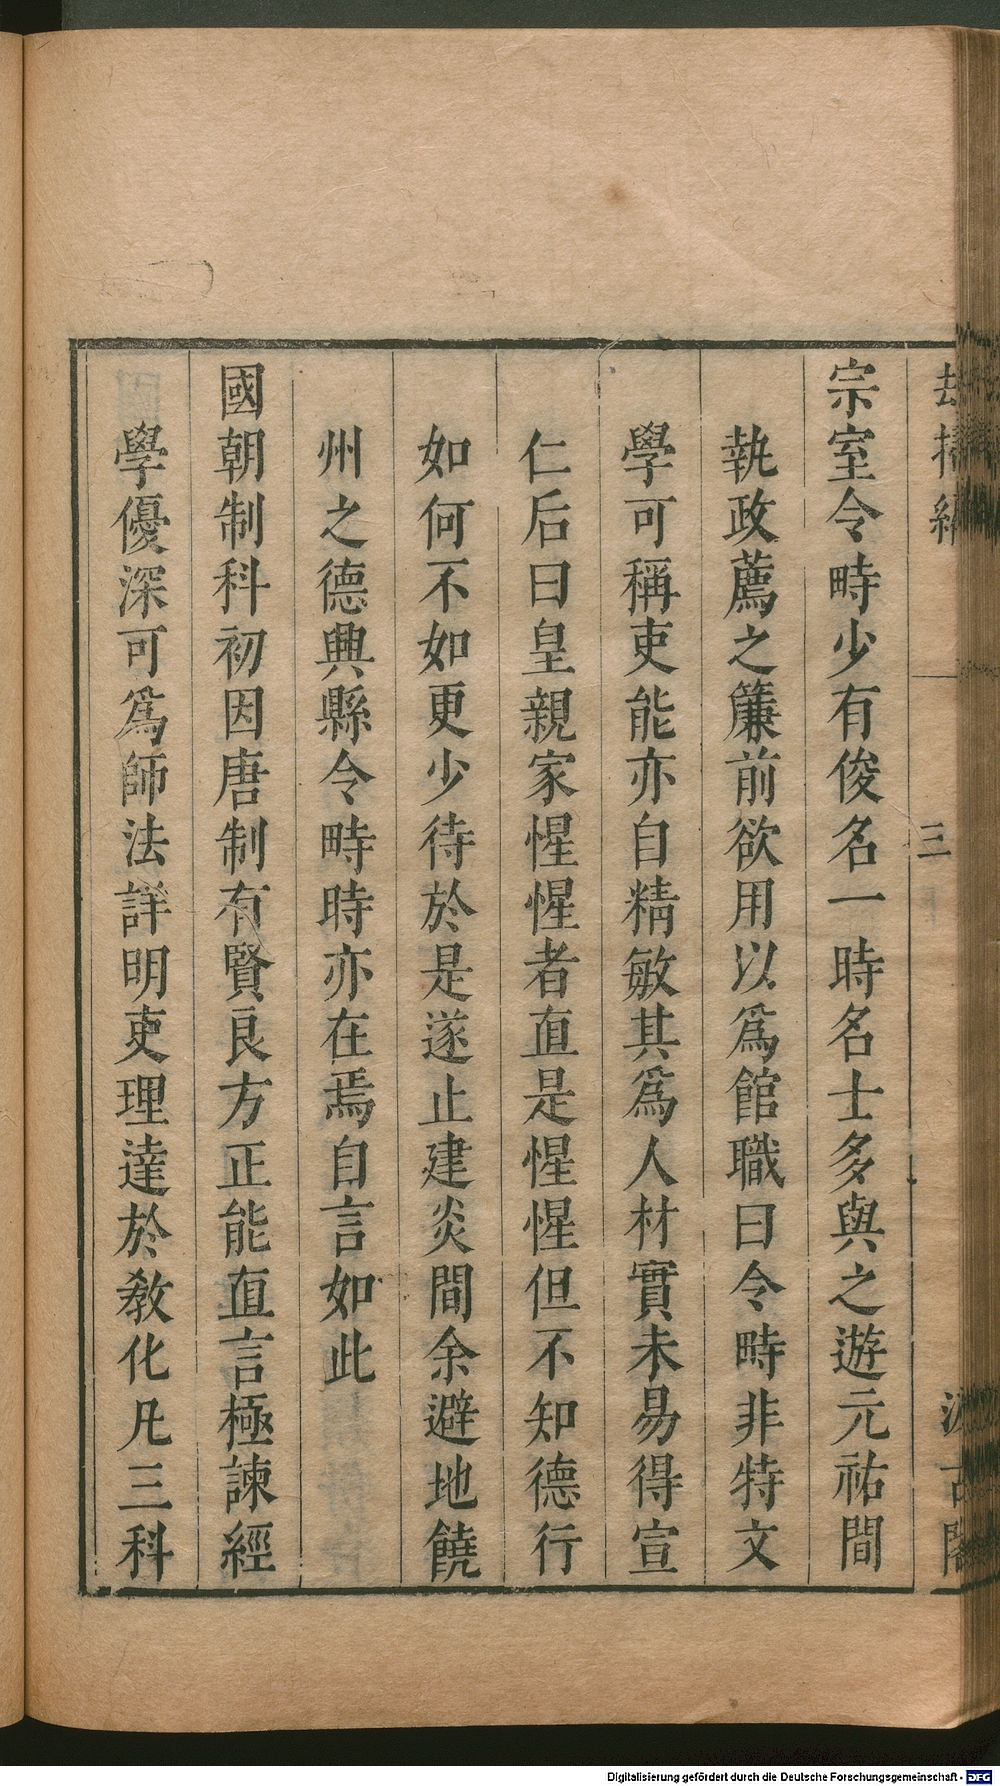 宗室令畤少有俊名一時名士多與之遊元祐間
執政薦之簾前欲用以爲館職曰令畤非特文
學可稱吏能亦自精敏其爲人材實未易得宣
仁后曰皇親家惺惺者直是惺惺但不知德行
如何不如更少待於是遂止建炎間余避地饒
州之德興縣令畤時亦在焉自言如此
國朝制科初因唐制有賢良方正能直言極諫經
學優深可爲師法詳明吏理達於教化凡三科
三
Digitalisierung gefördert durch die Deutsche Forschungsgemeinschaft - DFG